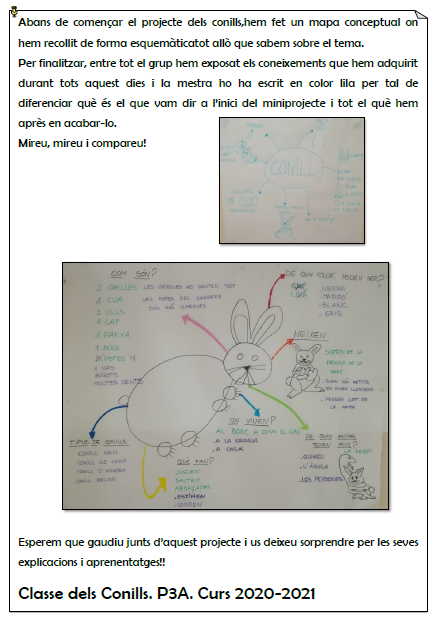 Abans de començar el projecte dels conills,hem fet un mapa conceptual on
hem recollit de forma esquemàticatot allò que sabem sobre el tema.
Per finalitzar, entre tot el grup hem exposat els coneixements que hem adquirit
durant tots aquest dies i la mestra ho ha escrit en color lila per tal de
diferenciar què és el que vam dir a l'inici del miniprojecte i tot el què hem
après en acabar-lo.
Mireu, mireu i compareu!
CONILL
COM SÓN?
2 ORELLES LES ORELLES HO SENTEN TOT
1 CUA LES POTES DEL DARRERE
2 ULLS SÓN MÉS LLARGUES
1 CAP
1 PANXA
1 BOCA
POTES 4
1 NAS
BIGOTIS
MOLTES DENTS
DE QUIN COLOR PODEN SER?
.NEGRE
.MARRÓ
.BLANC
.GRIS
NEIXEN
SURTEN DE LA
PANXA DE LA
MARE
.QUAN SÓN PETITS
.BEUEN LLET DE
LA MARE
ON VIUEN?
AL BOSC A DINS EL CAU
.A LA GRANJA
.A CASA
TIPUS DE CONILLS
CONILL NAN
CONILL DE CAMP
CONILL D'ANGORA
CONILL BELIER
QUÈ FAN?
.JUGUEN
.SALTEN
.ESTIMEN
.CORREN
DE QUIN ANIMAL
TENEN POR?
LA SERP
.GUINEU
.L'ÀGUILA
.LES PERSONES
Esperem que gaudiu junts d'aquest projecte i us deixeu sorprendre per les seves
explicacions i aprenentatges!!
Classe dels Conills. P3A. Curs 2020-2021